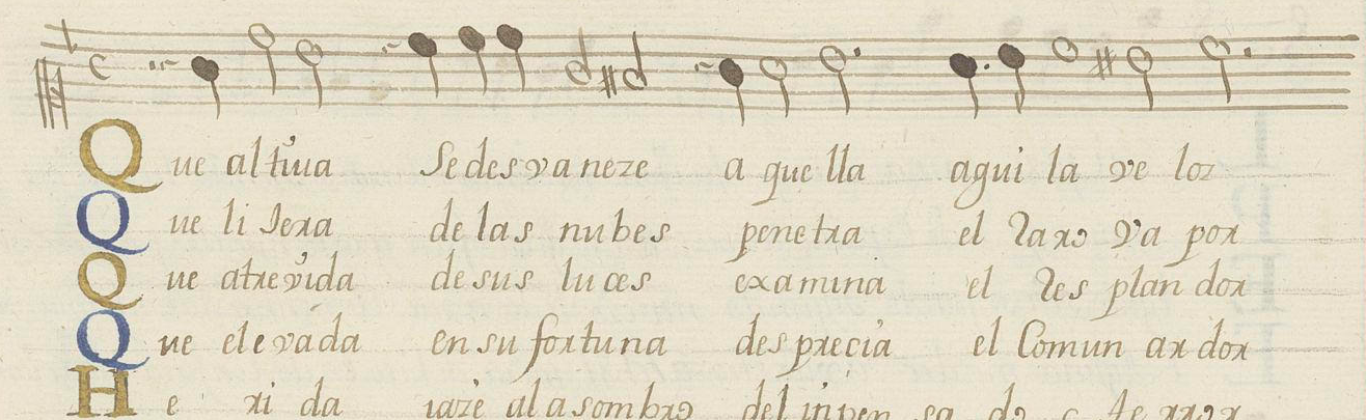 Que altiva Se desvaneze aquella aguila veloz
Que lijera de las nubes penetra el Raro Vapor
Que atrevida de sus luces examina el Resplandor
Que elevada en su fortuna desprecia el Comun ardor
Herida iaze al asombro del inpensado